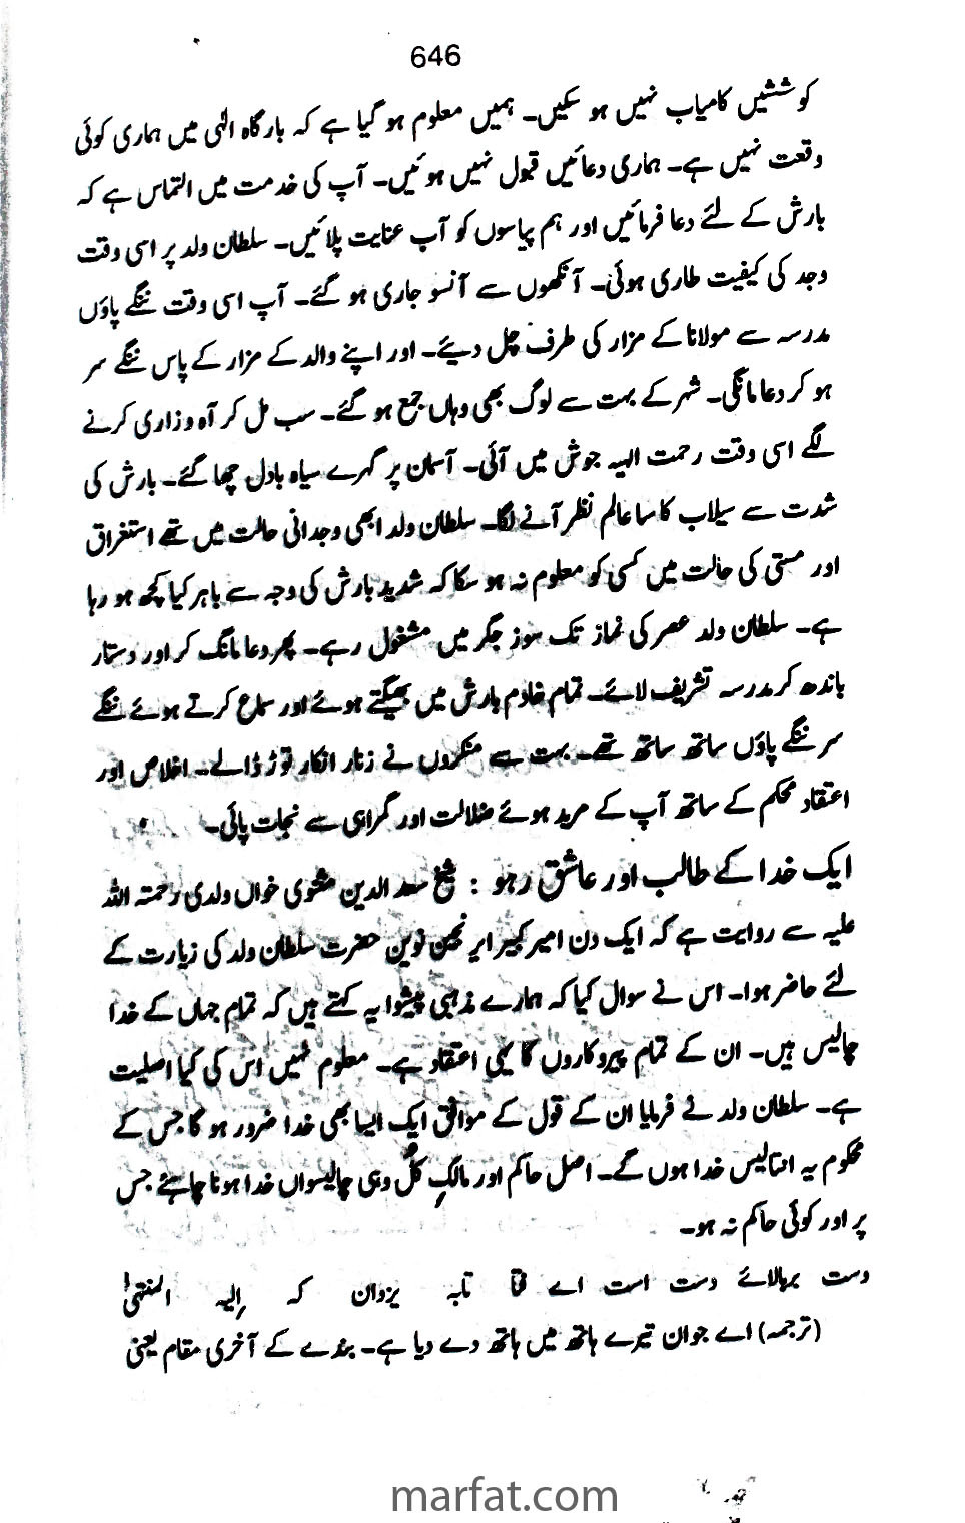 646
کوششیں کامیاب نہیں ہو سکیں۔ ہمیں معلوم ہو گیا ہے کہ بارگاہ الٰہی میں ہماری کوئی
وقعت نہیں ہے۔ ہماری دعائیں قبول نہیں ہوئیں۔ آپ کی خدمت میں التماس ہے کہ
بارش کے لئے دعا فرمائیں اور ہم پیاسوں کو آب عنایت پلائیں۔ سلطان ولد پر اسی وقت
وجد کی کیفیت طاری ہوئی۔ آنکھوں سے آنسو جاری ہو گئے۔ آپ اسی وقت ننگے پاؤں
مدرسہ سے مولانا کے مزار کی طرف چل دیئے۔ اور اپنے والد کے مزار کے پاس ننگے سر
ہو کر دعا مانگی۔ شہر کے بہت سے لوگ بھی وہاں جمع ہو گئے۔ سب مل کر آہ و زاری کرنے
لگے اسی وقت رحمت الہیہ جوش میں آئی۔ آسمان پر گہرے سیاہ بادل چھا گئے۔ بارش کی
شدت سے سیلاب کا سا عالم نظر آنے لگا۔ سلطان ولد ابھی وجدانی حالت میں تھے استغراق
اور مستی کی حالت میں کسی کو معلوم نہ ہو سکا کہ شدید بارش کی وجہ سے باہر کیا کچھ ہو رہا
ہے۔ سلطان ولد عصر کی نماز تک سوز جگر میں مشغول رہے۔ پھر دعا مانگ کر اور دستار
باندھ کر مدرسہ تشریف لائے۔ تمام خادم بارش میں بھیگتے ہوئے اور سماع کرتے ہوئے ننگے
سر ننگے پاؤں ساتھ ساتھ تھے۔ بہت سے منکروں نے زنار انکار توڑ ڈالے۔ اخلاص اور
اعتقاد محکم کے ساتھ آپ کے مرید ہوئے ضلالت اور گمراہی سے نجات پائی۔
ایک خدا کے طالب اور عاشق رہو : شیخ سعد الدین مثنوی خواں ولدی رحمتہ اللہ
علیہ سے روایت ہے کہ ایک دن امیر کبیر ایر نجین نوین حضرت سلطان ولد کی زیارت کے
لئے حاضر ہوا۔ اس نے سوال کیا کہ ہمارے مذہبی پیشوا یہ کہتے ہیں کہ تمام جہاں کے خدا
چالیس ہیں۔ ان کے تمام پیروکاروں کا یہی اعتقاد ہے۔ معلوم نہیں اس کی کیا اصلیت
ہے۔ سلطان ولد نے فرمایا ان کے قول کے موافق ایک ایسا بھی خدا ضرور ہو گا جس کے
محکوم یہ انتالیس خدا ہوں گے۔ اصل حاکم اور مالکِ کُل وہی چالیسواں خدا ہونا چاہئے جس
پر اور کوئی حاکم نہ ہو۔
دست بربالائے دست است اے فتا تابہ یزدان کہ اِلیہ المنتہیٰ
(ترجمہ) اے جوان تیرے ہاتھ میں ہاتھ دے دیا ہے۔ بندے کے آخری مقام یعنی
marfat.com